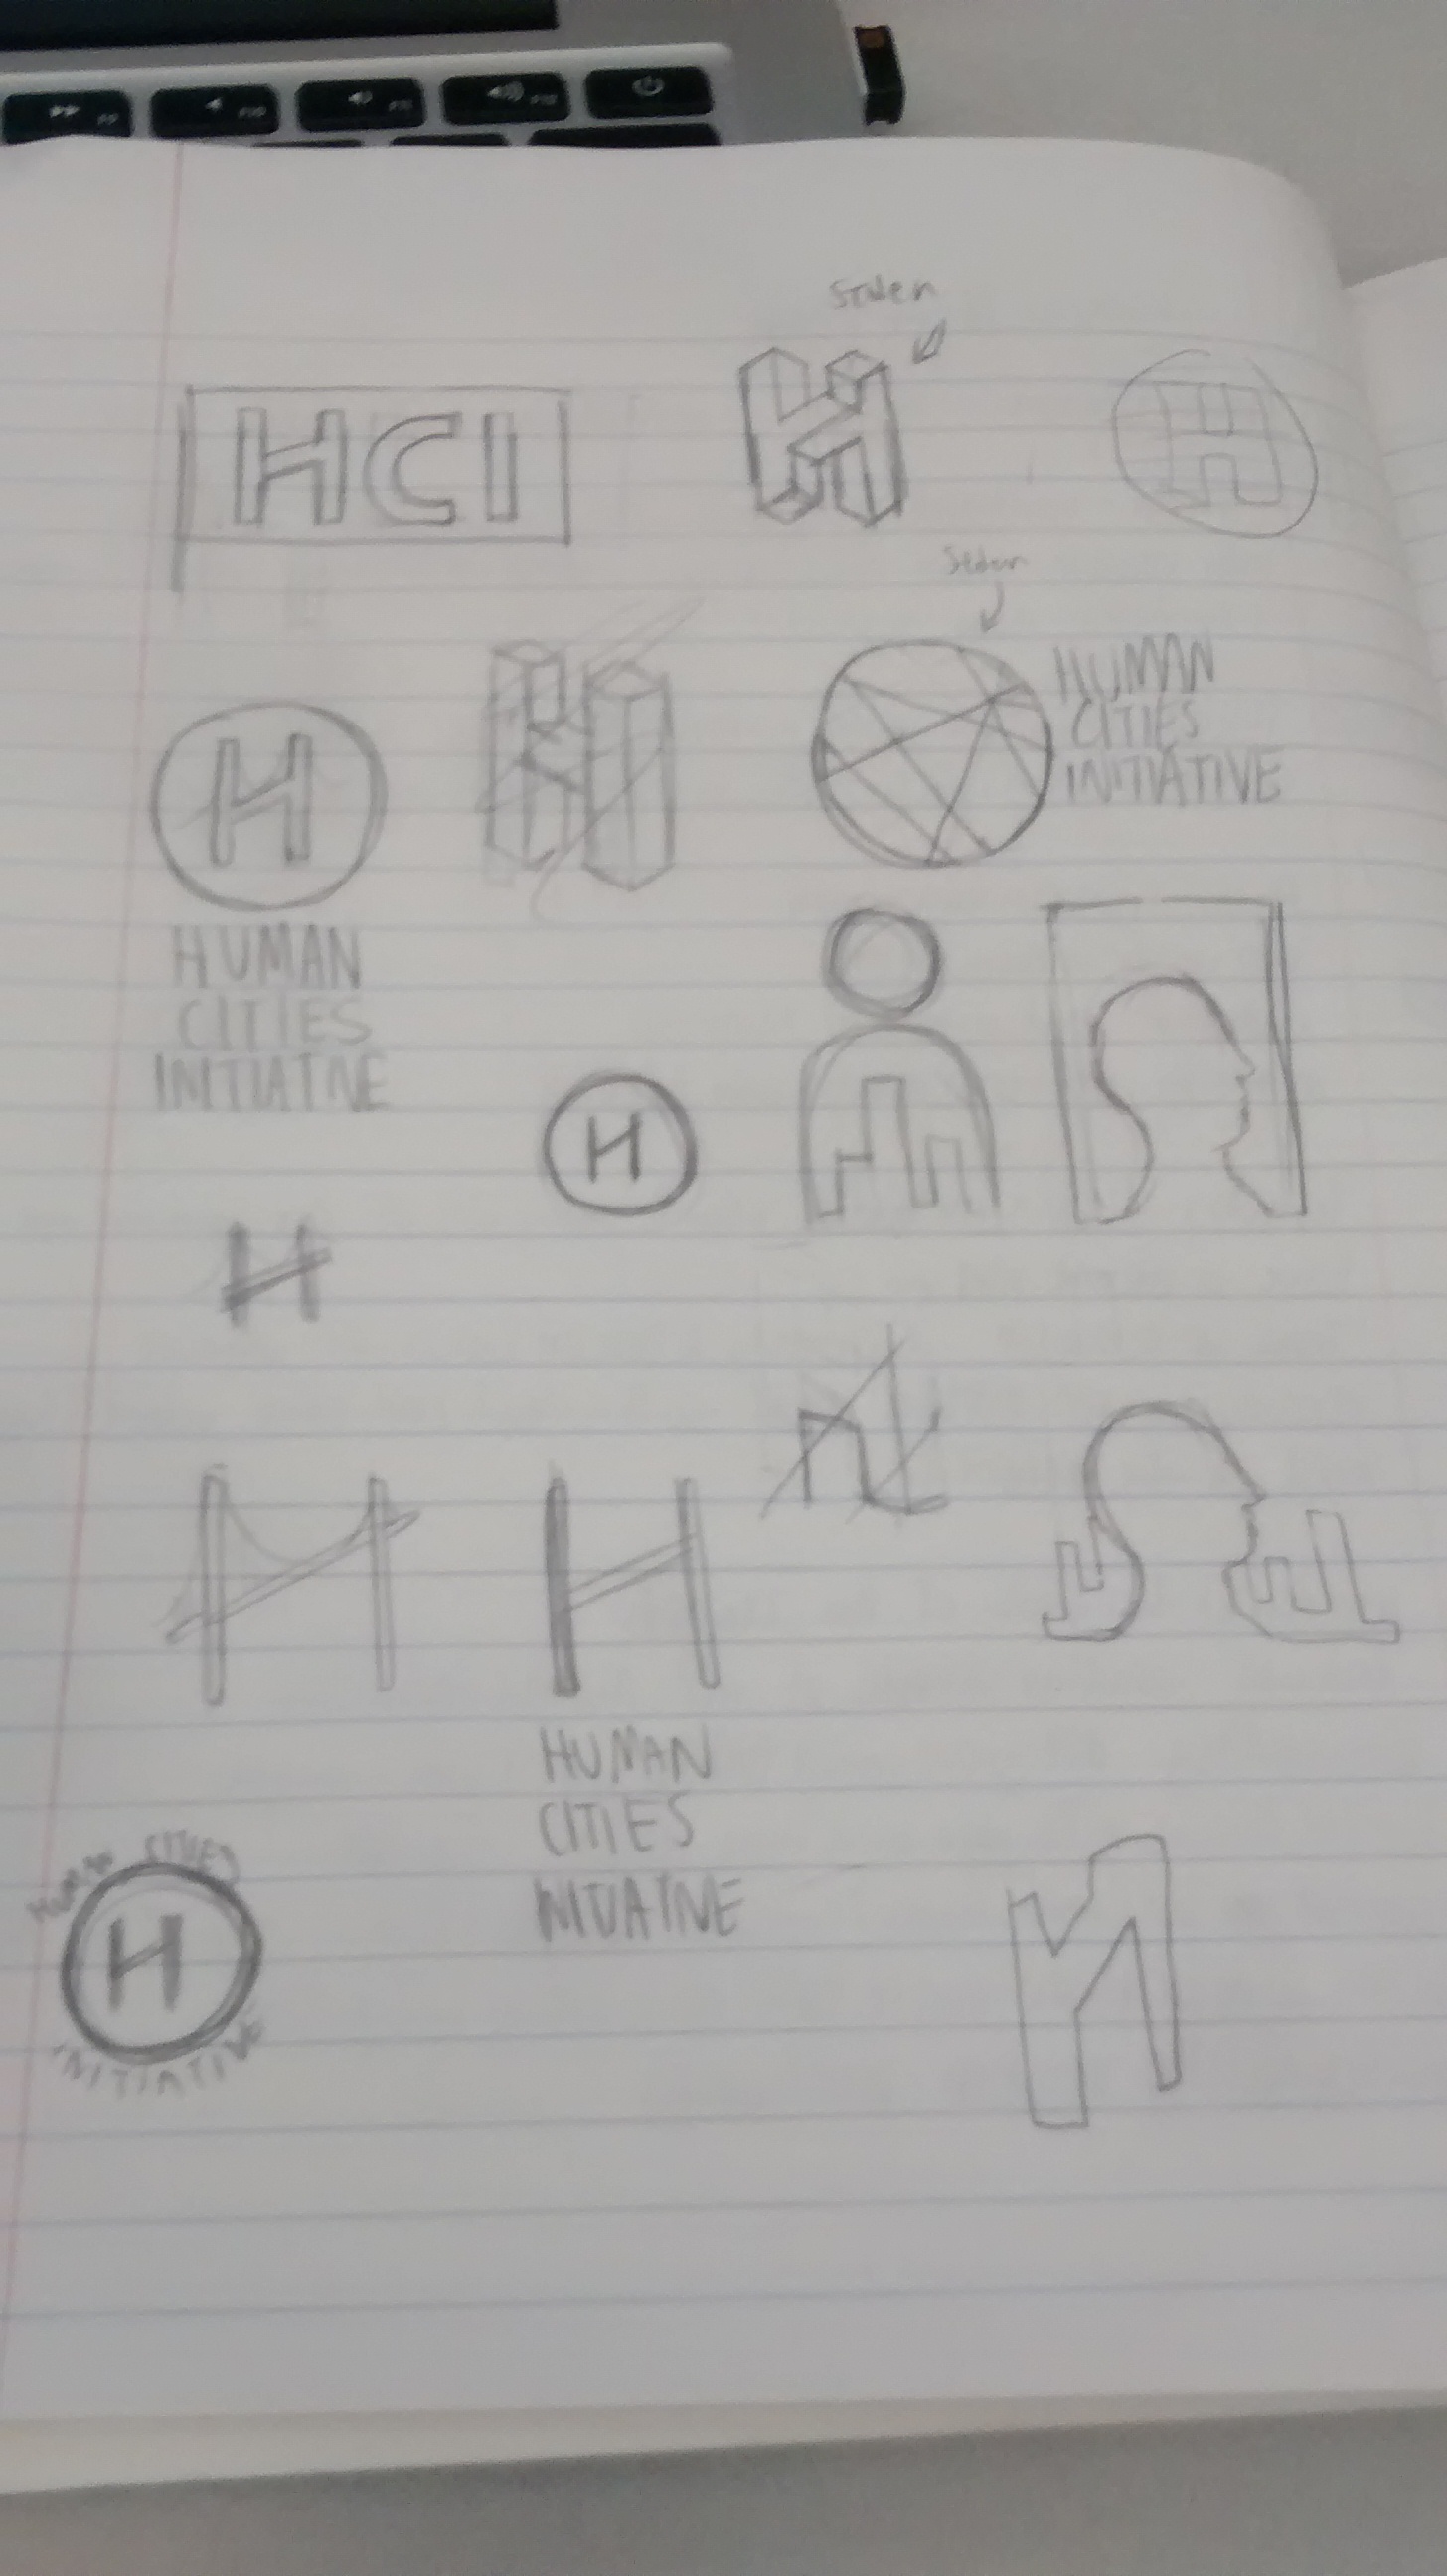 Stolen
HCI
H
H
Stolen
HUMAN
CITIES
INITIATIVE
H
HUMAN
CITIES
INITIATIVE
H
H
H
H
HUMAN
CITIES
INITIATIVE
HUMAN CITIES
H
INITIATIVE